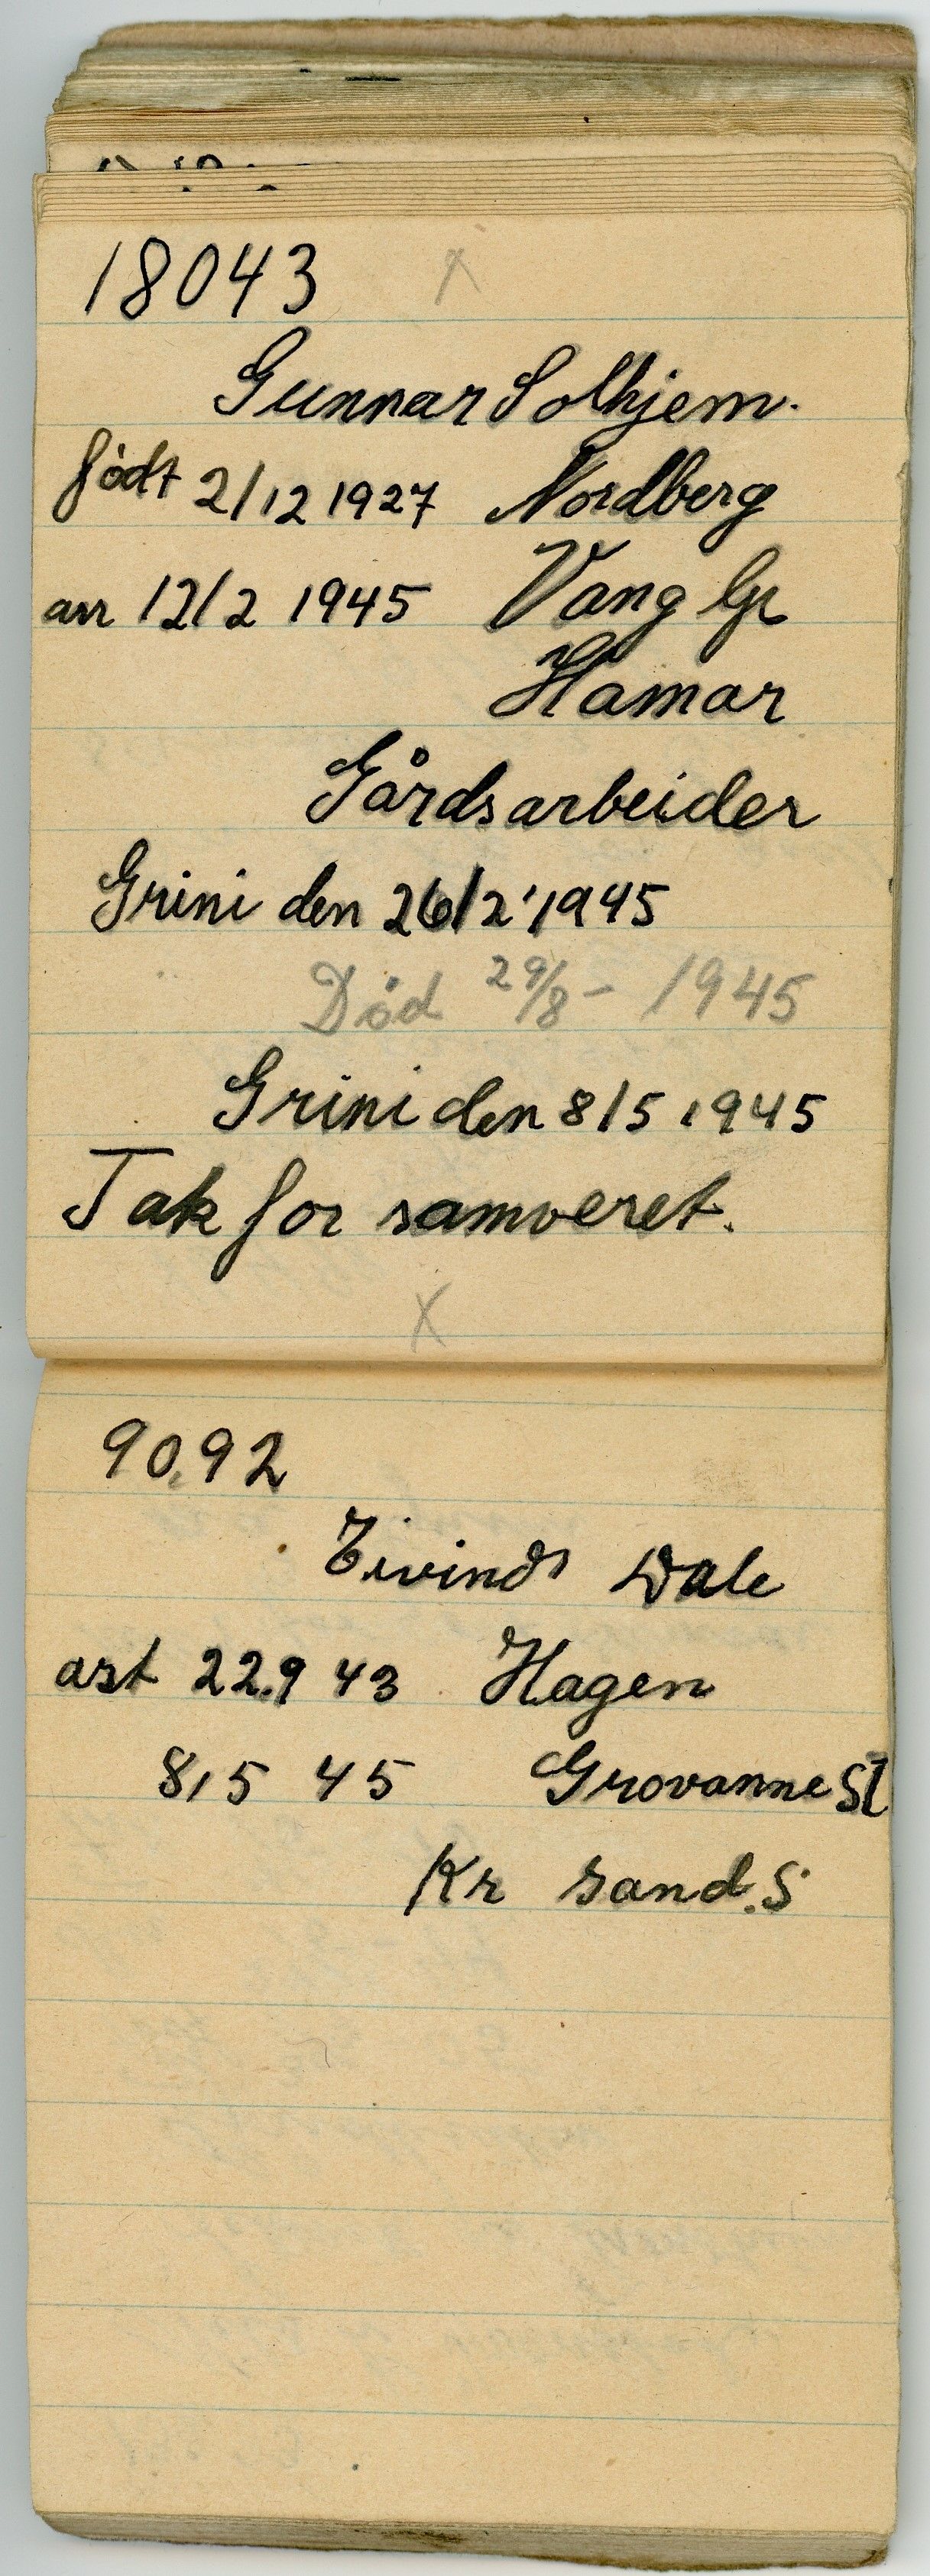 18043 X
Gunnar Solhjem.
født 2/12 1927 Nordberg
arr 12/2 1945 Vang
Hamar
Gårdsarbeider
Grini den 26/2 1945
Død 29/8 - 1945
Grini den 8/5 1945
Tak for samveret.
X
9092
Eivind Dale
arst 22.9 43 Hagen
8/5 45 Grovanne St
Kr sand.S